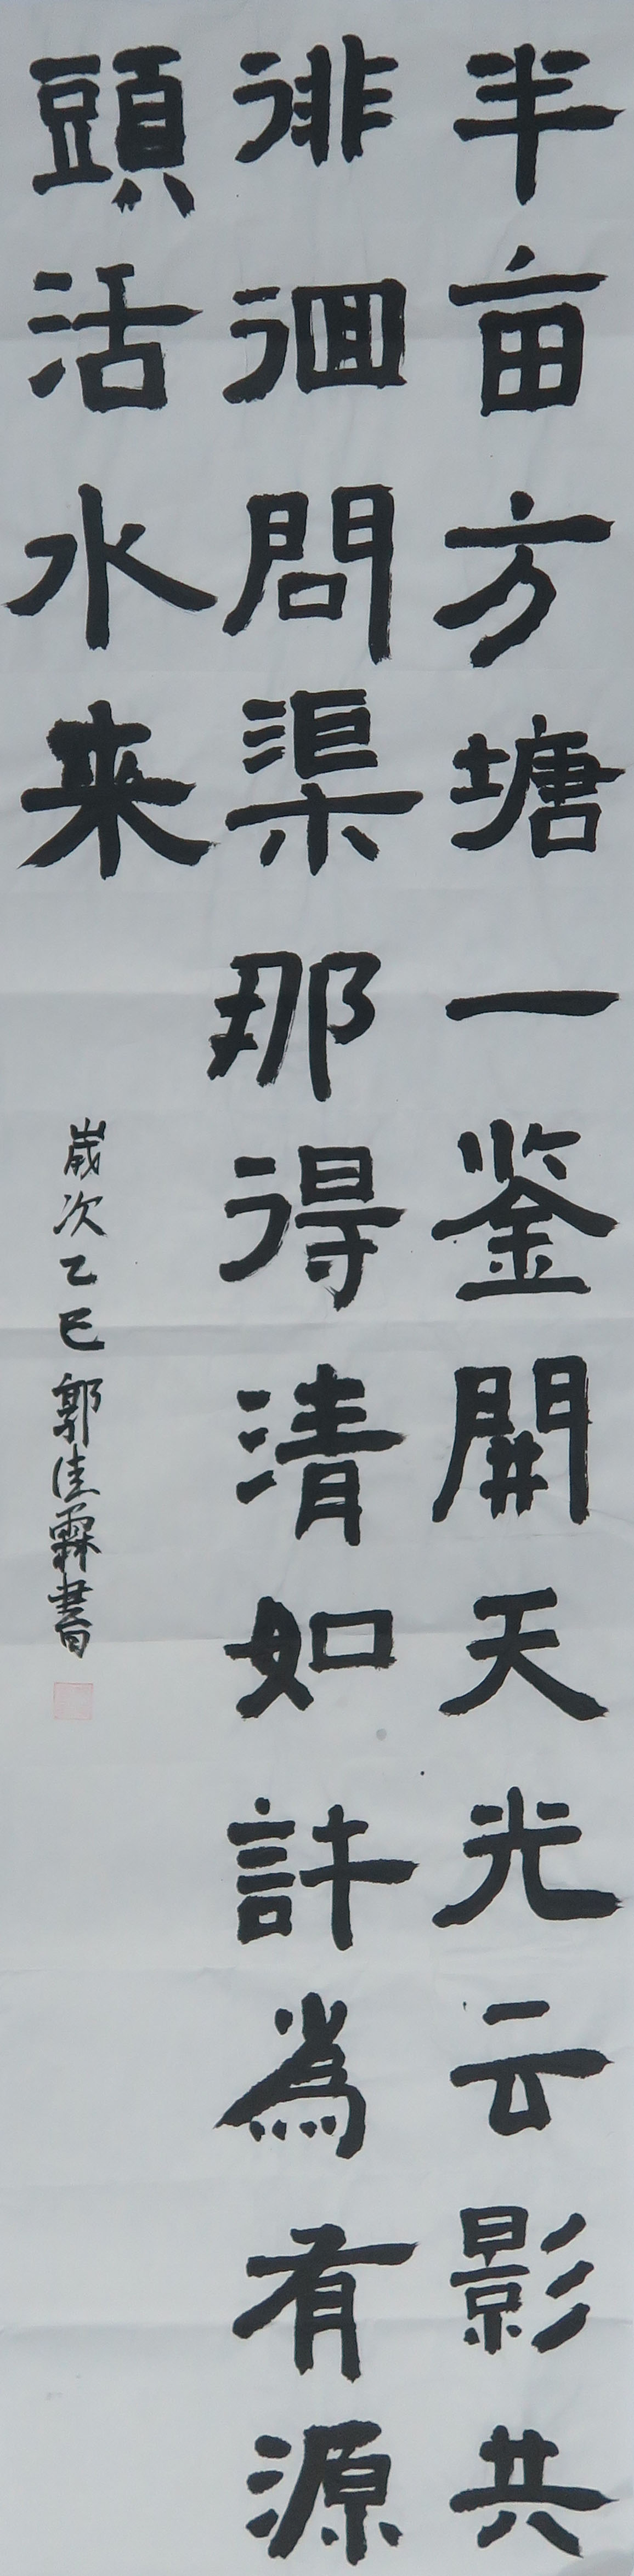 半亩方塘一鉴開天光云影共
徘徊問渠那得清如許為有源
頭活水来
歲次乙巳郭佳霖書